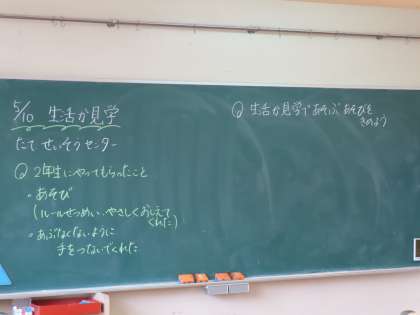 5/10 生活か見学
たてせいそうセンター
Q 2年生にやってもらったこと
・あそび
(ルールせつめい、やさしくおしえて
くれた)
・あぶなくないように
手をつないでくれた
Q 生活か見学であそぶあそびを
きめよう